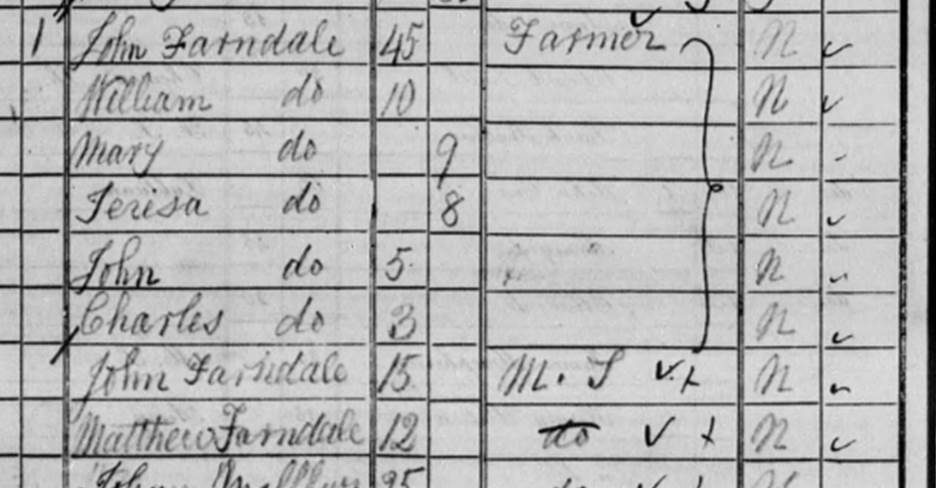 1 John Farndale 45 Farmer N
William do 10 N
Mary do 9 N
Teresa do 8 N
John do 5 N
Charles do 3 N
John Farndale 15 M. S N
Matthew Farndale 12 do N